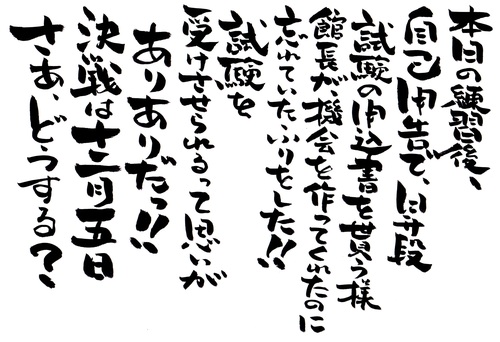 本日の練習後、
自己申告で、昇段
試験の申込書を貰う様
館長が、機会を作ってくれたのに
忘れていたふりをした!!
試験を
受けさせられるって思いが
ありありだっ!!
決戦は十二月五日
さあ、どうする?